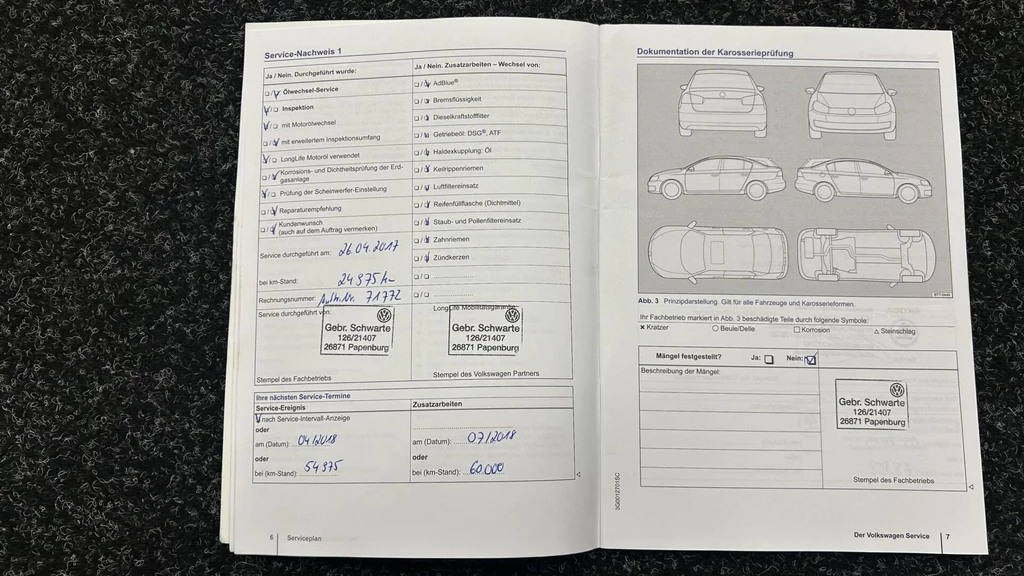 Service-Nachweis 1
Ja / Nein. Durchgeführt wurde:
Ölwechsel-Service
Inspektion
mit Motorölwechsel
mit erweitertem Inspektionsumfang
LongLife Motoröl verwendet
Korrosions- und Dichtheitsprüfung der Erd-
gasanlage
Prüfung der Scheinwerfer-Einstellung
Reparaturempfehlung
Kundenwunsch
(auch auf dem Auftrag vermerken)
Service durchgeführt am: 26.04.2017
bei km-Stand: 24975 km
Rechnungsnummer: Auftr. Nr. 71772
Service durchgeführt von:
Gebr. Schwarte
126/21407
26871 Papenburg
Stempel des Fachbetriebs
Ja / Nein. Zusatzarbeiten – Wechsel von:
AdBlue®
Bremsflüssigkeit
Dieselkraftstofffilter
Getriebeöl: DSG®, ATF
Haldexkupplung: Öl
Keilrippenriemen
Luftfiltereinsatz
Reifenfüllflasche (Dichtmittel)
Staub- und Pollenfiltereinsatz
Zahnriemen
Zündkerzen
LongLife Mobilitätsgarantie
Gebr. Schwarte
126/21407
26871 Papenburg
Stempel des Volkswagen Partners
Ihre nächsten Service-Termine
Service-Ereignis
nach Service-Intervall-Anzeige
oder
am (Datum): 04/2018
oder
bei (km-Stand): 54975
Zusatzarbeiten
am (Datum): 07/2018
oder
bei (km-Stand): 60.000
6 Serviceplan
Dokumentation der Karosserieprüfung
Abb. 3 Prinzipdarstellung. Gilt für alle Fahrzeuge und Karosserieformen.
Ihr Fachbetrieb markiert in Abb. 3 beschädigte Teile durch folgende Symbole:
× Kratzer ○ Beule/Delle □ Korrosion △ Steinschlag
Mängel festgestellt? Ja: Nein:
Beschreibung der Mängel:
Gebr. Schwarte
126/21407
26871 Papenburg
Stempel des Fachbetriebs
3G0012701SC
Der Volkswagen Service 7